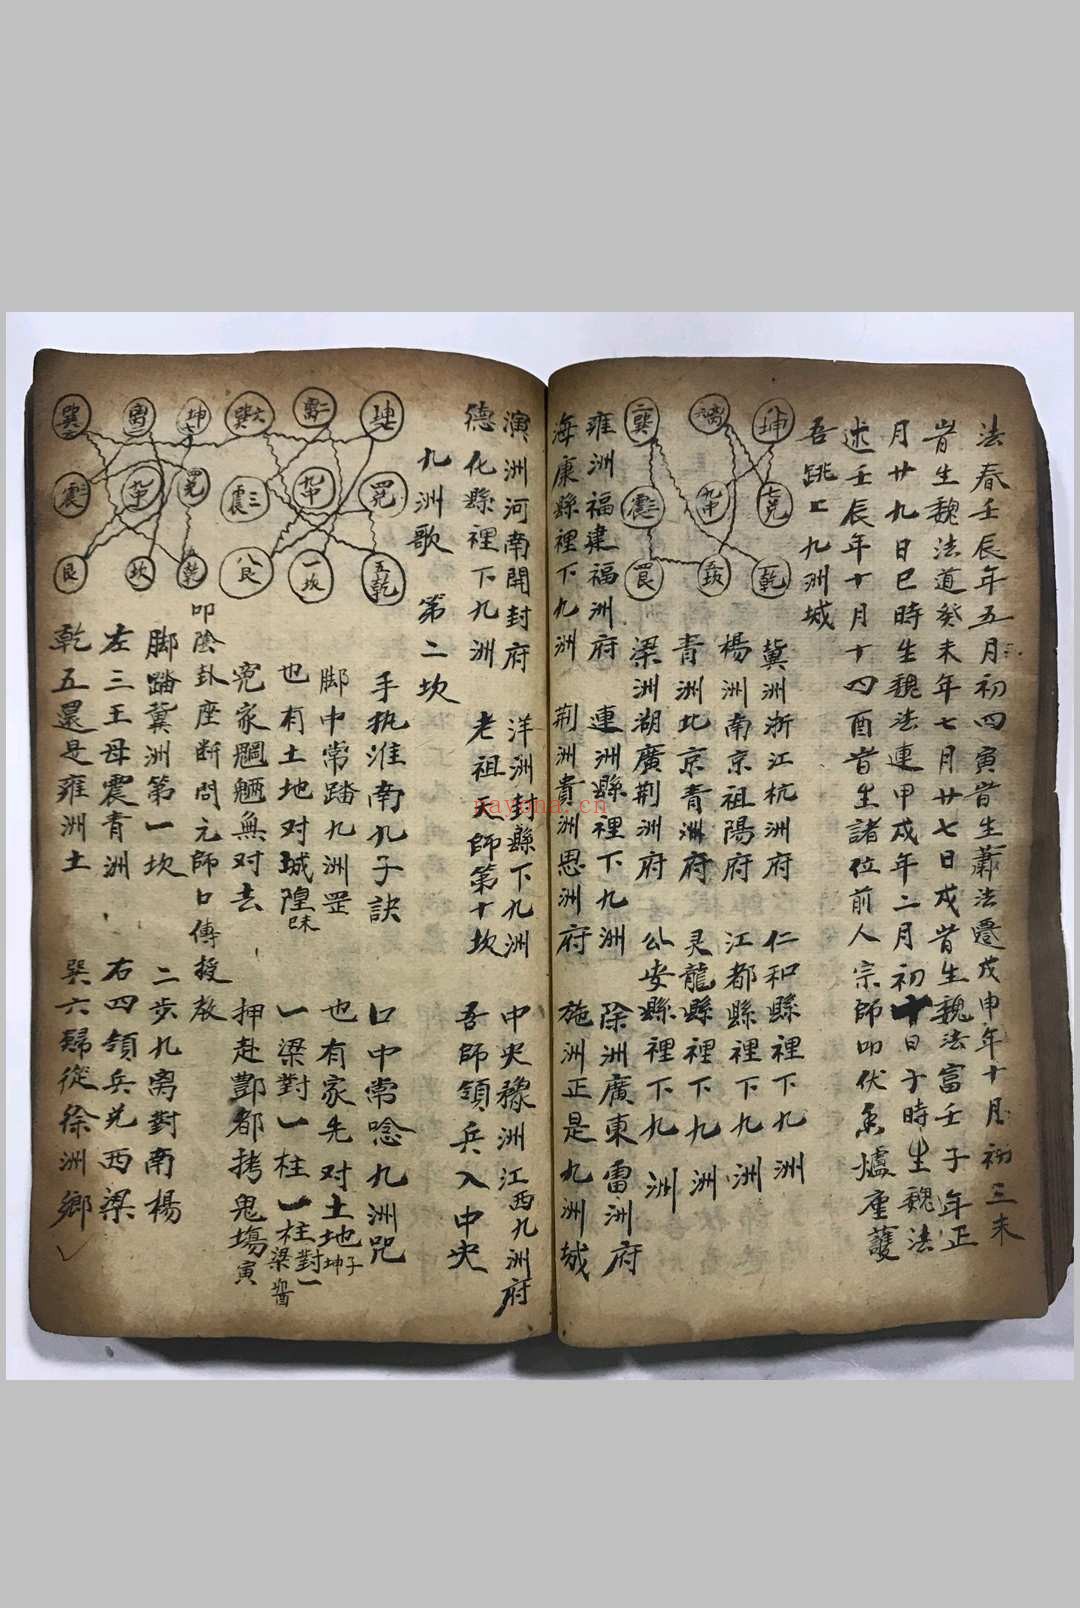 法春壬辰年五月初四寅时生蕭法遷戊申年十月初三未
时生魏法道癸未年七月廿七日戌时生魏法富壬子年正
月廿九日巳時生魏法連甲戌年二月初十日子時生魏法
述壬辰年十月十四酉时生諸位前人宗師叩伏香爐座護
吾跳上九洲城
坤 離 巽二
七兑 九中 震三
乾 坎 艮
冀洲浙江杭洲府 仁和縣裡下九洲
楊洲南京祖陽府 江都縣裡下九洲
青洲北京青洲府 灵龍縣裡下九洲
梁洲湖廣荆洲府 公安縣裡下九洲
雍洲福建福洲府 連洲縣裡下九洲 除洲廣東雷洲府
海康縣裡下九洲 荆洲貴洲思洲府 施洲正是九洲城
演洲河南開封府 洋洲封縣下九洲 中央豫洲江西九洲府
德化縣裡下九洲 老祖天師第十坎 吾師領兵入中央
九洲歌 第二坎
坤 二離 巽六
四兑 九中 震三
五乾 一坎 八艮
坤七 離 巽
兑 九中 震
乾 坎 艮
手执淮南九子訣 口中常唸九洲咒
脚中常踏九洲罡 也有家先对土地 坤子
也有土地对城隍 未巳 一梁對一柱一柱對一梁
冤家魍魎無对去 押赴酆都拷鬼塲 寅
叩陰卦座断問元師口傳授教
脚踏冀洲第一坎 二步九离對南楊
左三王母震青洲 右四領兵兑西梁
乾五還是雍洲土 巽六歸從徐洲鄉
nayona.cn